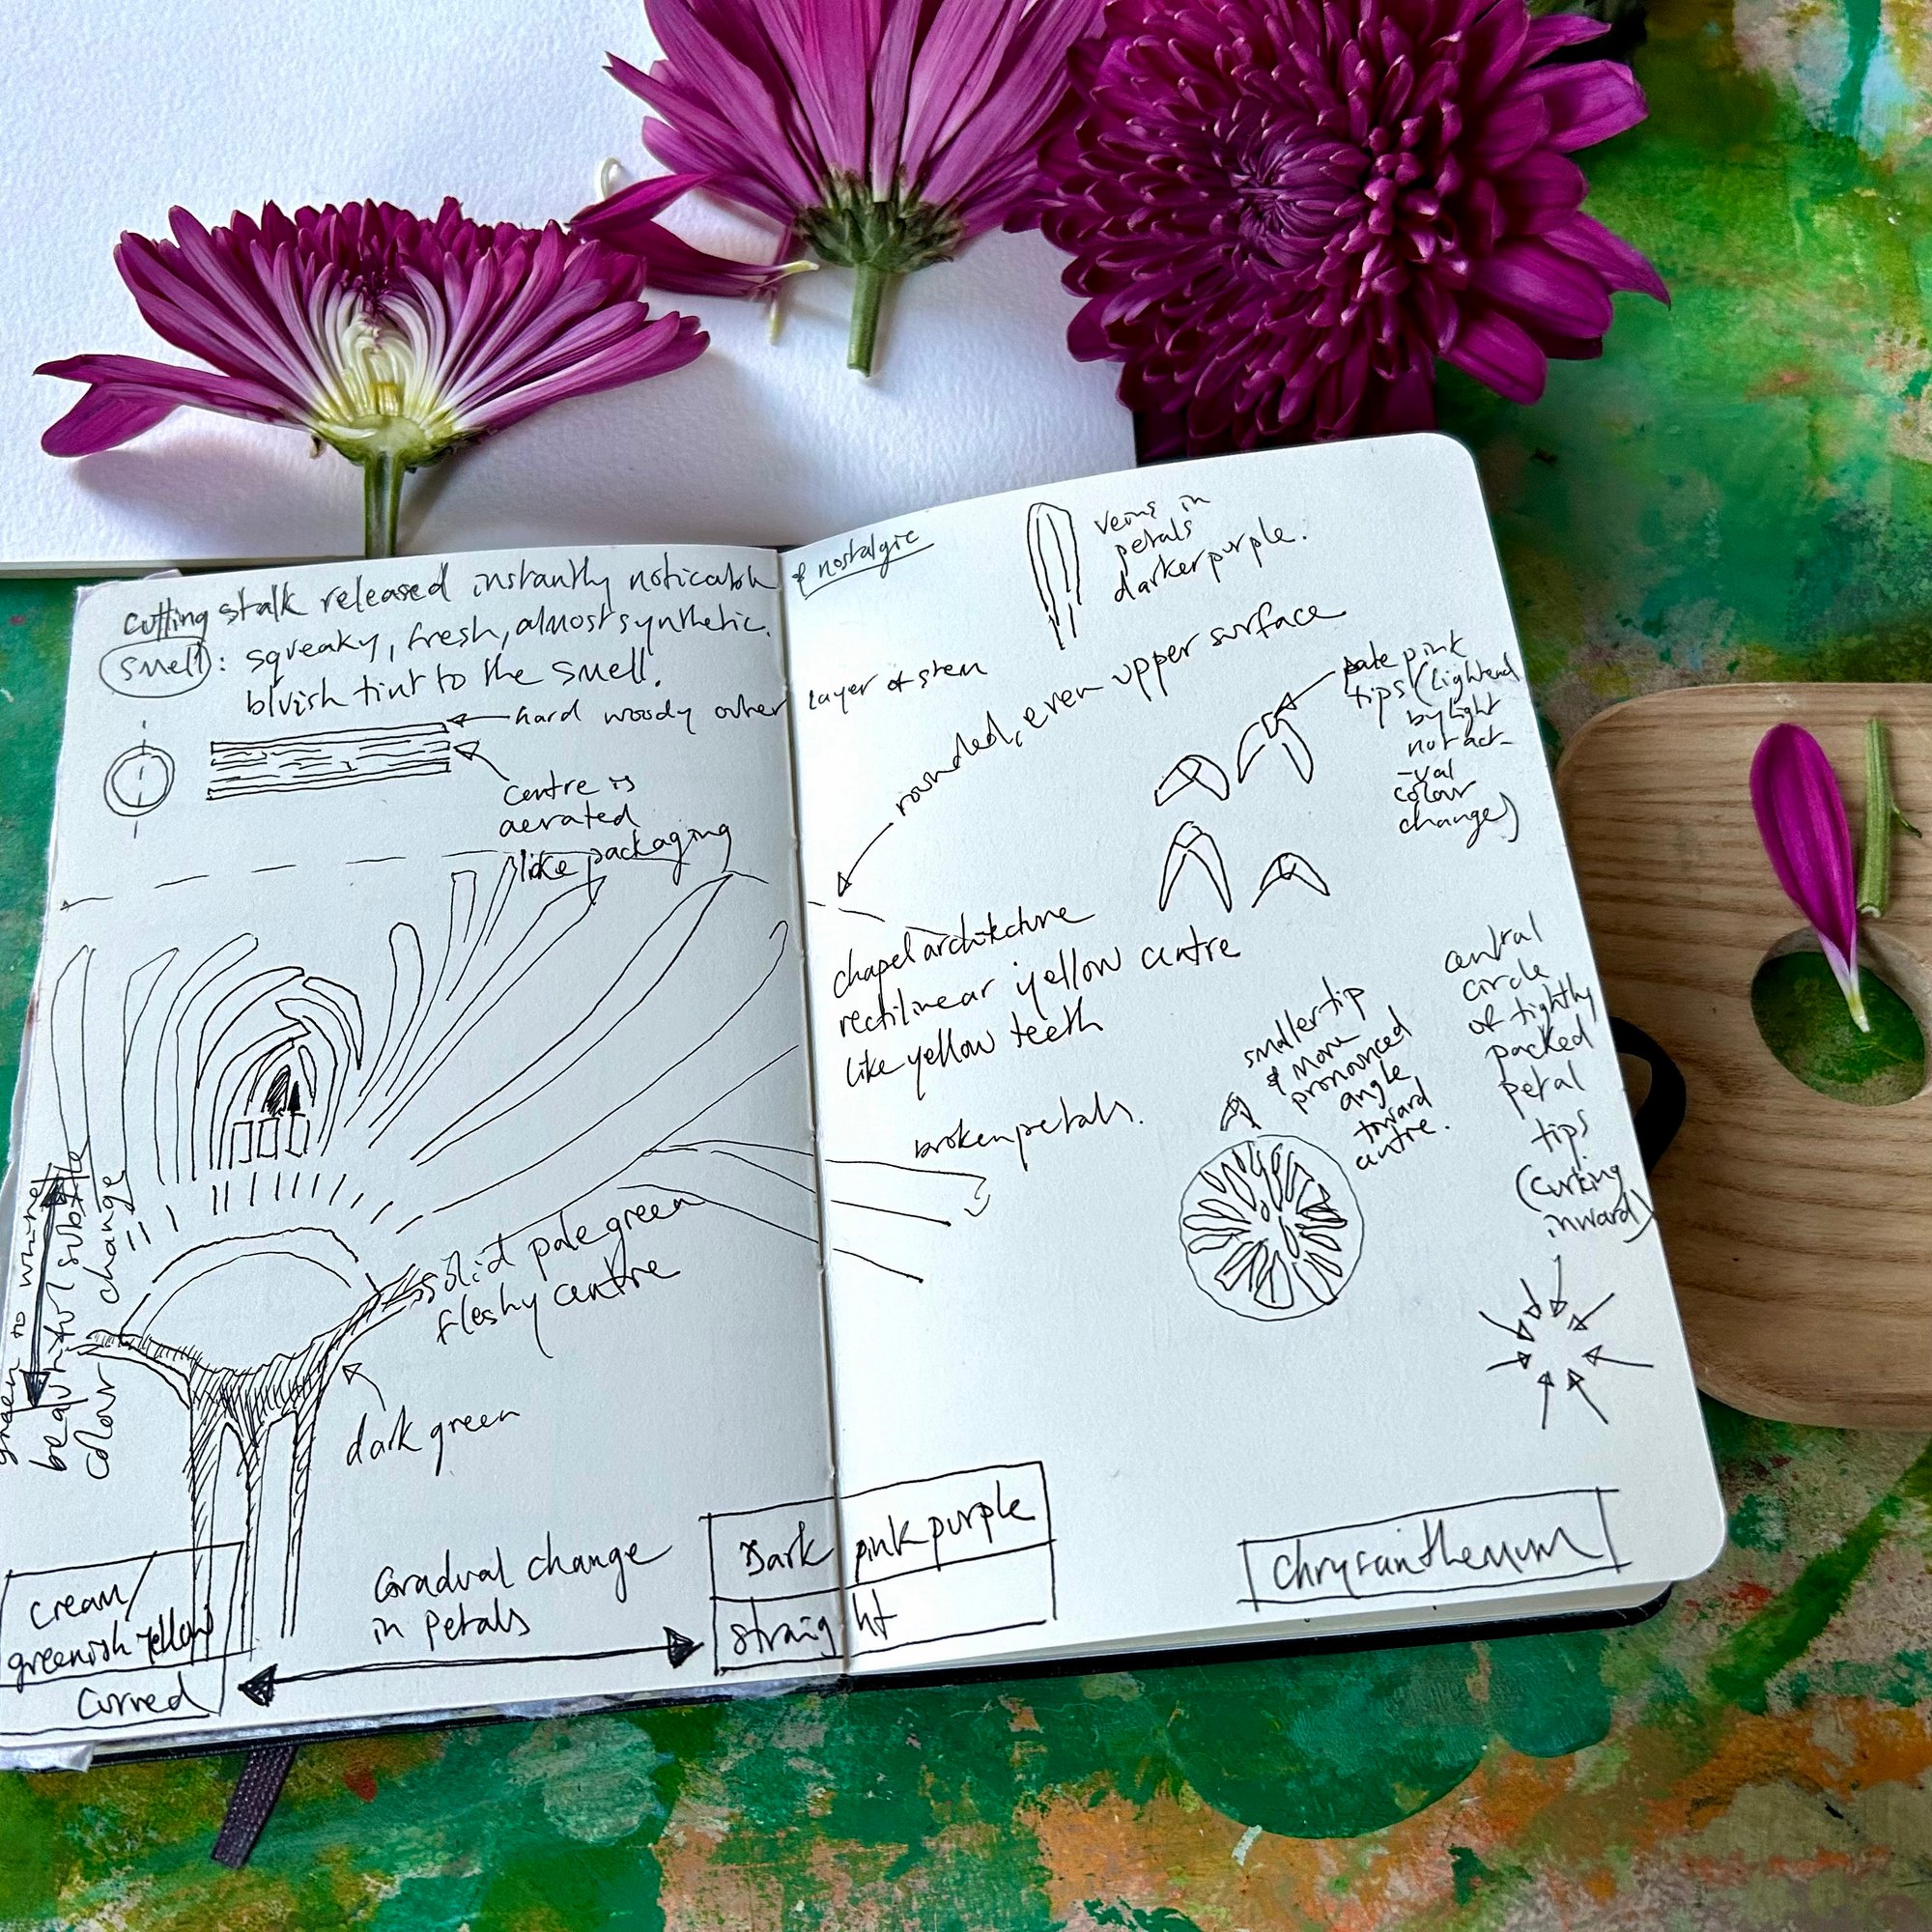 Cutting stalk released instantly noticable & nostalgic
Smell: squeaky, fresh, almost synthetic.
bluish tint to the smell.
hard woody outer layer of stem
centre is
aerated
like packaging
solid pale green
fleshy centre
dark green
green to white
beautiful subtle
colour change
cream/
greenish yellow
Curved
Gradual change
in Petals
Dark pink purple
straight
veins in
petals
darker purple.
rounded, even upper surface
pale pink
tips (lightened
by light
not act-
-ual
colour
change)
chapel architecture
rectilinear yellow centre
like yellow teeth
broken petals.
smaller tip
& more
pronounced
angle
toward
centre.
central
circle
of tightly
packed
petal
tips
(curking
inward)
Chrysanthemum